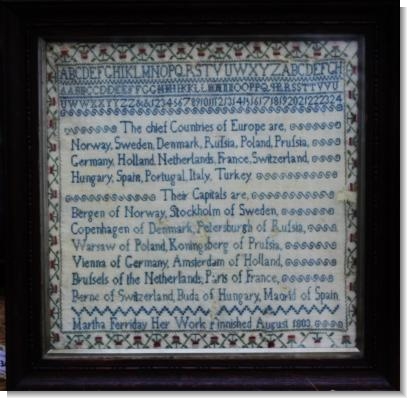 ABCDEFGHIKLMNOPQRSTVUWXYZABCDEFGH
The chief Countries of Europe are,
Norway, Sweden, Denmark, Ruſsia, Poland, Pruſsia,
Germany, Holland, Netherlands, France, Switzerland,
Hungary, Spain, Portugal, Italy, Turkey
Their Capitals are,
Bergen of Norway, Stockholm of Sweden,
Copenhagen of Denmark, Petersburgh of Ruſsia,
Warsaw of Poland, Koningsberg of Pruſsia,
Vienna of Germany, Amsterdam of Holland,
Bruſsels of the Netherlands, Paris of France,
Berne of Switzerland, Buda of Hungary, Madrid of Spain
Martha Ferriday Her Work Finnished August 1803